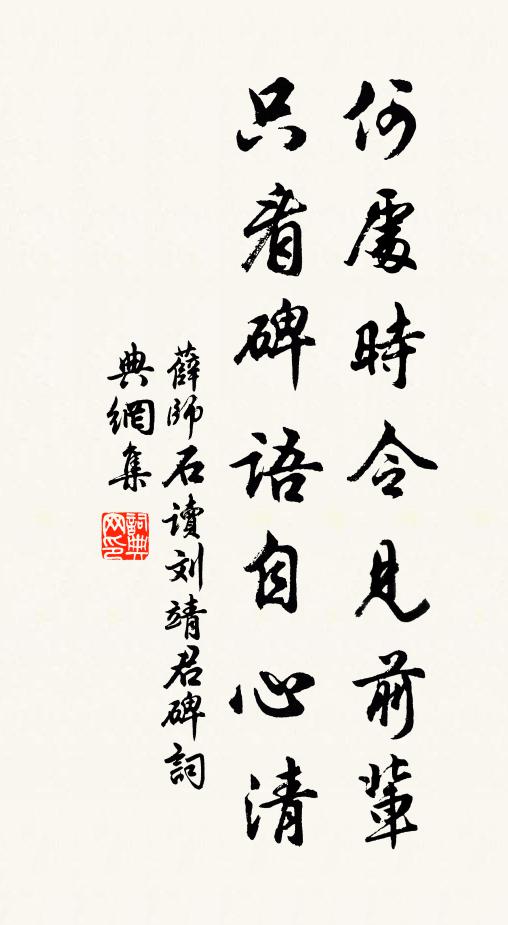 何處時令見前輩
只看碑語自心清
薛師石讀刘靖君碑詞
典網集
詞典網印